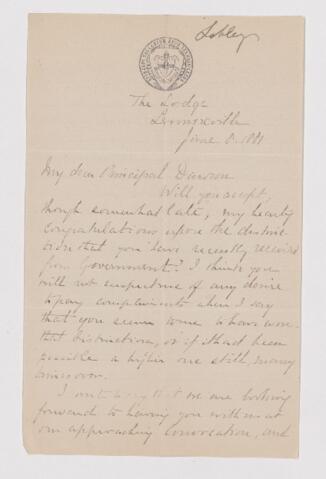 Lobley
The Lodge
Lennoxville
June 8. 1881
My dear Principal Dawson
Will you accept,
though somewhat late, my hearty
congratulations upon the distinc-
tion that you have recently received
from Government? I think you
will not suspect me of any desire
to pay compliments when I say
that you seem to me to have won
that distinction, or if it had been
possible a higher one still, many
times over.
I write to say that we are looking
forward to having you with us at
our approaching Convocation, and